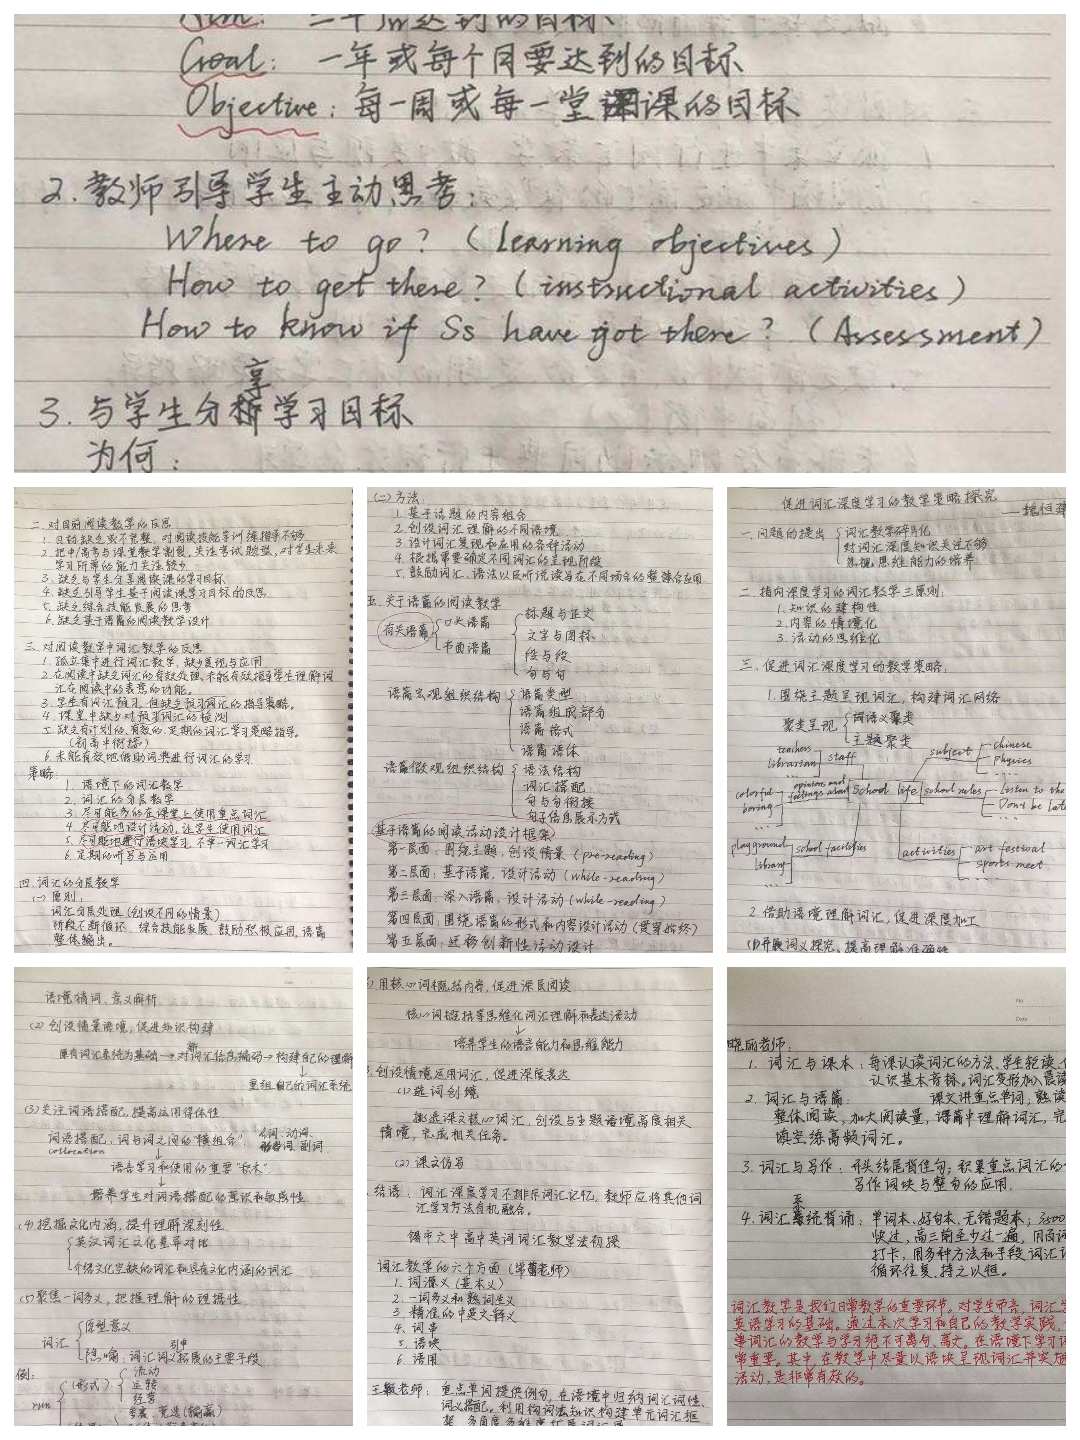 Aim: 三年后达到的目标、
Goal: 一年或每个月要达到的目标
Objective: 每一周或每一堂课的目标
2. 教师引导学生主动思考:
Where to go? (Learning objectives)
How to get there? (instructional activities)
How to know if Ss have got there? (Assessment)
享
3. 与学生分析学习目标
为何:
二. 对目前阅读教学的反思
1. 目的缺乏或不完整, 对阅读技能等训练指导不够
2. 把中/高考与课堂教学割裂, 关注考试题型, 对学生未来
学习所需的能力关注较少
3. 缺乏与学生分享阅读课的学习目标
4. 缺乏引导学生基于阅读课学习目标的反思
5. 缺乏综合技能发展的思考
6. 缺乏基于语篇的阅读教学设计
三. 对阅读教学中词汇教学的反思
1. 孤立集中进行词汇教学, 缺少复现与应用
2. 在阅读中缺乏词汇的有效处理, 未能有效指导学生理解词
汇在阅读中的表意的功能。
3. 学生有词汇预习, 但缺乏预习词汇的指导策略。
4. 课堂中缺少对预习词汇的检测
5. 缺乏有计划的、有效的、定期的词汇学习策略指导。
(初高中衔接)
6. 未能有效地借助词典进行词汇的学习
策略:
1. 语境下的词汇教学
2. 词汇的分层教学
3. 尽可能多的在课堂上使用重点词汇
4. 尽可能地设计活动, 让学生使用词汇
5. 尽可能地进行语块学习, 不单一词汇学习
6. 定期的听写与应用
四. 词汇的分层教学
(一) 原则:
词汇分层处理 (创设不同的情景)
阶段不断循环, 综合技能发展, 鼓励积极应用, 语篇
整体输出。
(二) 方法:
1. 基于话题的内容组合
2. 创设词汇理解的不同语境
3. 设计词汇复现和应用的各种活动
4. 根据需要确定不同词汇的呈现阶段
5. 鼓励词汇、语法以及听说读写在不同场合的整综合应用
五. 关于语篇的阅读教学
有关语篇 口头语篇 书面语篇
标题与正文
文字与图标
段与段
句与句
语篇宏观组织结构
语篇类型
语篇组成部分
语篇格式
语篇语体
语篇微观组织结构
语法结构
词汇搭配
句与句衔接
句子信息展示方式
(基于语篇的阅读活动设计框架)
第一层面: 围绕主题, 创设情景 (pre-reading)
第二层面: 基于语篇, 设计活动 (while-reading)
第三层面: 深入语篇, 设计活动 (while-reading)
第四层面: 围绕语篇的形式和内容设计活动 (贯穿始终)
第五层面: 迁移创新性活动设计
促进词汇深度学习的教学策略探究
一. 问题的提出
词汇教学碎片化
对词汇深度知识关注不够
忽视思维能力的培养
二. 指向深度学习的词汇教学三原则:
1. 知识的建构性
2. 内容的情境化
3. 活动的思维化
三. 促进词汇深度学习的教学策略:
1. 围绕主题呈现词汇, 构建词汇网络
聚类呈现 词语义聚类
主题聚类
teachers
librarian
staff
subject
chinese
physics
...
colorful
boring
...
opinions and
feelings about
School life
school rules
Listen to the
Don't be late
...
playground
library
...
school facilities
activities
art festival
sports meet
...
2. 借助语境理解词汇, 促进深度加工
(1) 开展词义探究, 提高理解准确性
语境猜词, 意义解析
(2) 创设情景语境, 促进知识构建
新
原有词汇系统为基础→对词汇信息编码→构建自己的理解
重组自己的词汇系统
(3) 关注词语搭配, 提高运用得体性
词语搭配: 词与词之间的"横组合"
collocation
名词、动词、
形容词、副词
语言学习和使用的重要"积木"
培养学生对词语搭配的意识和敏感性
(4) 挖掘文化内涵, 提升理解深刻性
英汉词汇文化差异对比
介绍文化空缺的词汇和具有文化内涵的词汇
(5) 聚焦一词多义, 把握理解的理据性
词汇
原型意义
引申
隐喻: 词汇词义拓展的主要手段
例:
run
(形式)
流动
运转
经营
用核心词概括内容, 促进深层阅读
核心词提携等思维化词汇理解和表达活动
培养学生的语言能力和思维能力
创设情境运用词汇, 促进深度表达
(1) 选词创境
挑选课文核心词汇, 创设与主题语境高度相关
情境, 完成相关任务。
(2) 课文仿写
结语: 词汇深度学习不排斥词汇记忆, 教师应将其他词
汇学习方法有机融合。
锡市六中高中英词词汇教学法初探
词汇教学的六个方面
1. 词源义 (基本义)
2. 一词多义和熟词生义
3. 精准的中英文释义
4. 词串
5. 语块
6. 语用
王毅老师: 重点单词提供例句, 在语境中归纳词汇词性、
词义搭配。利用构词法知识构建单元词汇框
晓丽老师:
1. 词汇与课本: 每课认读词汇的方法, 学生轮读,
认识基本音标。词汇变形加入晨读
2. 词汇与语篇: 课文讲重点单词, 熟读
整体阅读, 加大阅读量, 语篇中理解词汇, 完
填空练高频词汇。
3. 词汇与写作: 开头结尾背佳句; 积累重点词汇的
写作词块与整句的应用.
4. 词汇系统背诵: 单词本、好句本、无错题本; 3500
快过, 高三前至少过一遍, 用百词
打卡, 用多种方法和手段词汇
循环往复, 持之以恒。
词汇教学是我们日常教学的重要环节。对学生而言, 词汇学
英语学习的基础。通过本次学习和自己的教学实践,
单词汇的教学与学习绝不可离句、离文。在语境下学习词
常重要。其中, 在教学中尽量以语块呈现词汇并实施
活动, 是非常有效的。